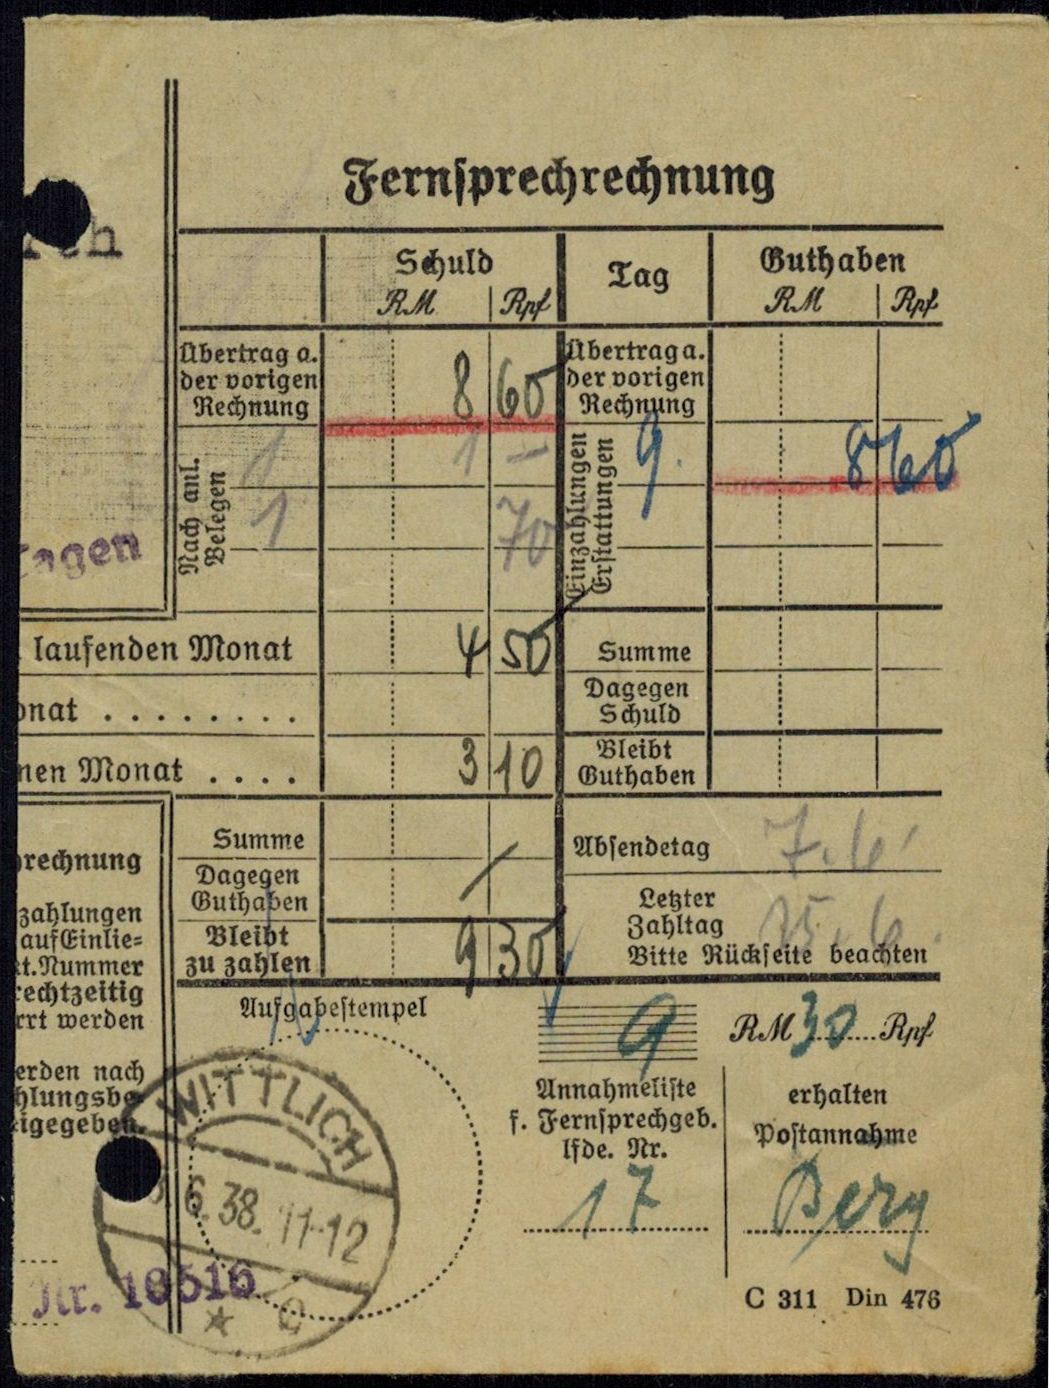 Fernsprechrechnung
Schuld Tag Guthaben
RM Rpf RM Rpf
Übertrag a. Übertrag a.
der vorigen 8 60 der vorigen
Rechnung Rechnung
Nach anl. Belegen
1 1 –
1 70
Einzahlungen Erstattungen
9. 8 60
tagen
laufenden Monat 4 50 Summe
onat ........ Dagegen
Schuld
nen Monat .... 3 10 Bleibt
Guthaben
Summe Absendetag 7.6.
rechnung Dagegen
zahlungen Guthaben Letzter
auf Einlie= Bleibt Zahltag
kt.Nummer zu zahlen 9 30 Bitte Rückseite beachten
rechtzeitig
rrt werden
Aufgabestempel 9 RM 30 Rpf
erden nach Annahmeliste erhalten
hlungsbe f. Fernsprechgeb. Postannahme
igegeben. lfde. Nr.
17 Berg
WITTLICH
6.38. 11-12
* c
Nr. 18516
C 311 Din 476